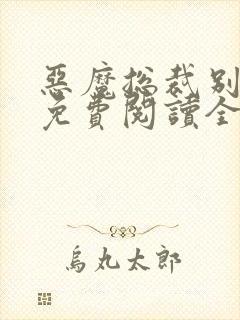 惡魔總裁別
免費閱讀全
烏丸太郎